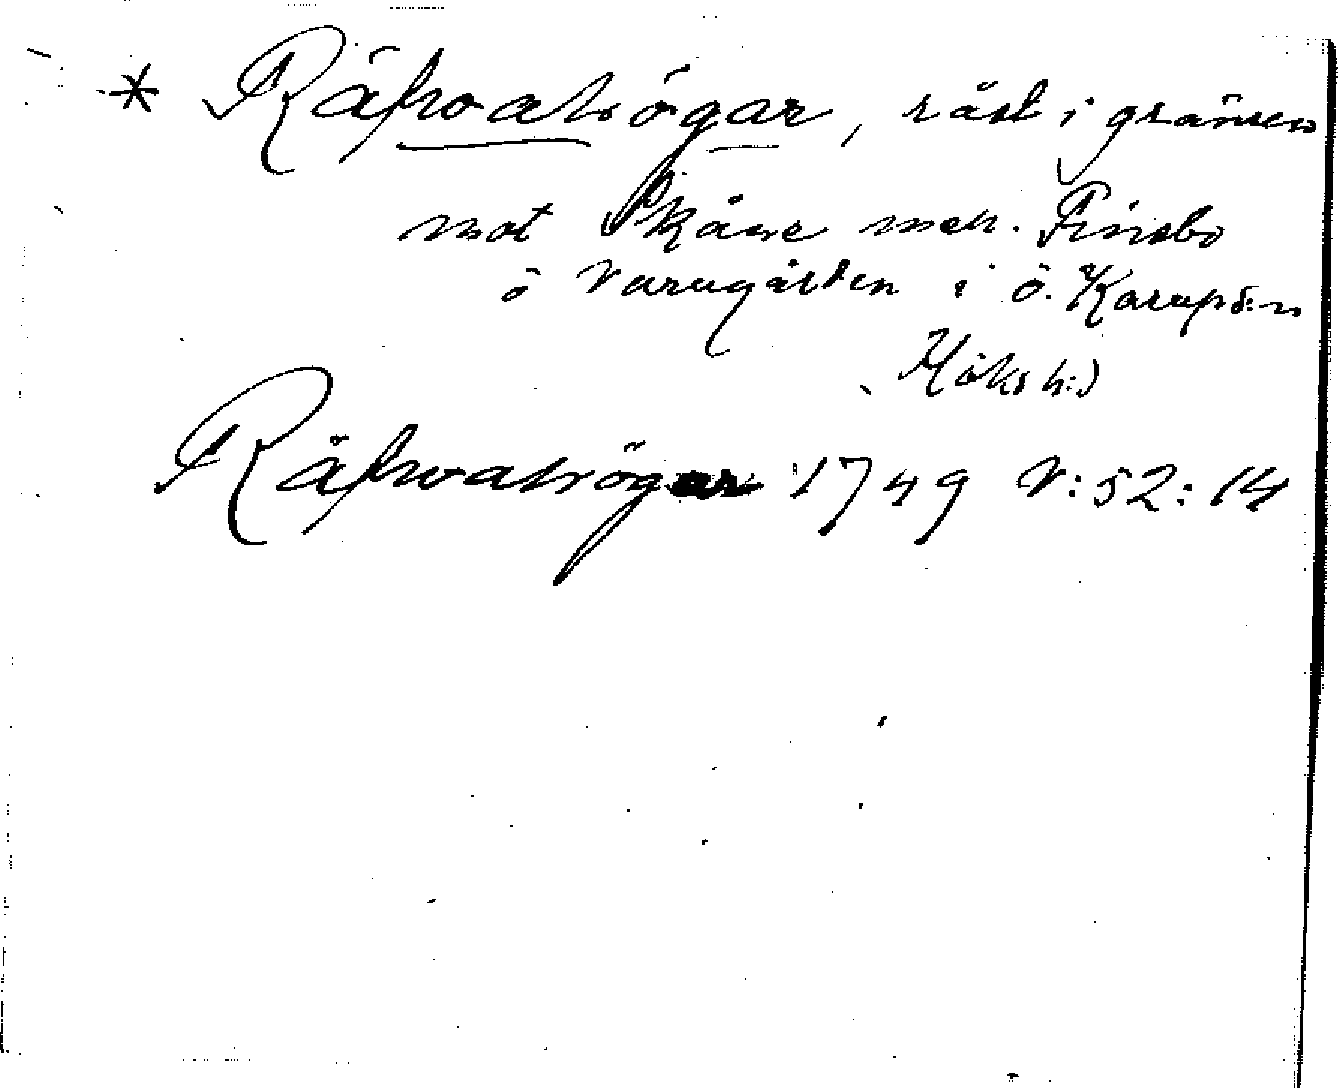 * Räfwahögar, råst i gränsen
mot Skåne mell. Finsbo
o Varugården i Ö. Karups sn
Höks h:d
Räfwahögar 1749 V:52:14